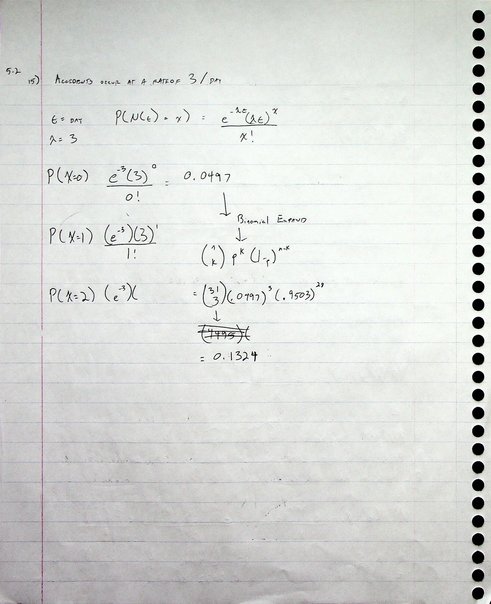 5.2
15) ACCIDENTS OCCUR AT A RATE OF 3 / DAY
t = DAY P(N(t) = x) = e^{-λt}(λt)^x / x!
λ = 3
P(X=0) e^{-3}(3)^0 / 0! = 0.0497
↓ Binomial Expand
P(X=1) (e^{-3})(3)^1 / 1!
↓
(n k) p^k (1-p)^{n-k}
P(X=2) (e^{-3})( = (31 3)(.0497)^3 (.9503)^{28}
↓
= 0.1324